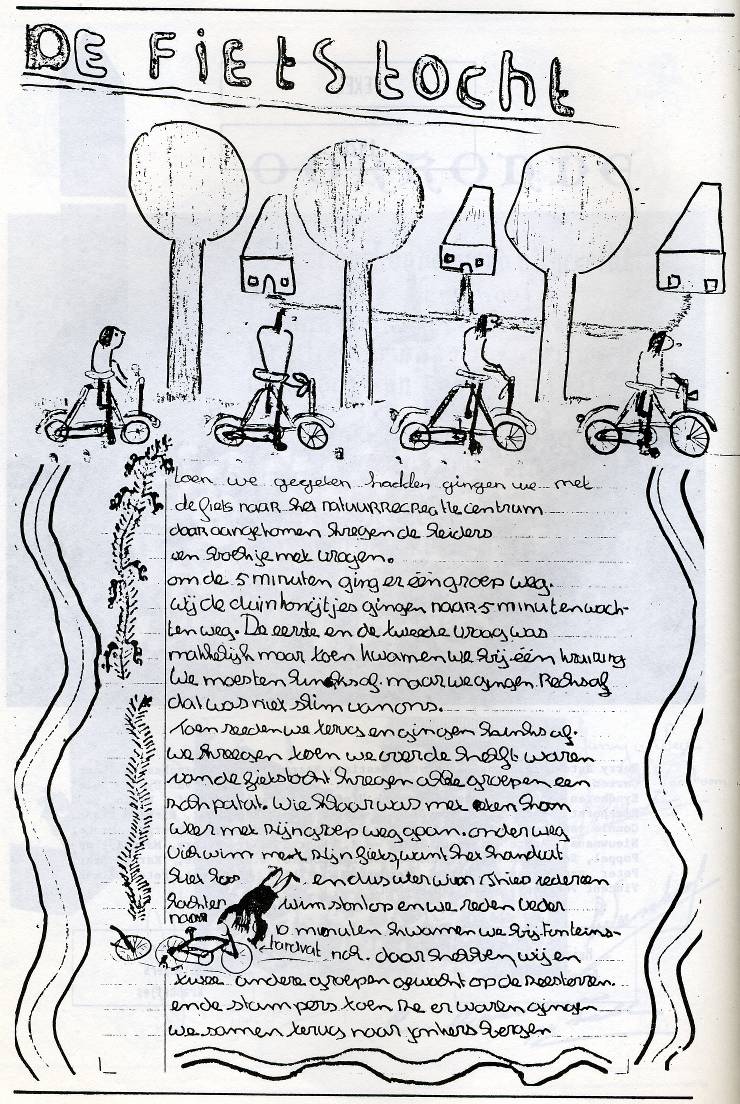 DE FiEtStocht
toen we gegeten hadden gingen we met
de fiets naar het natuurrecreatiecentrum
daar aangekomen kregen de leiders
een boekje met vragen.
om de 5 minuten ging er één groep weg.
wij de duinkonijtjes gingen naar 5 minuten wach-
ten weg. De eerste en de tweede vraag was
makkelijk maar toen kwamen we bij één kruising
We moesten links af maar we gingen Rechs af
dat was niet slim van ons.
Toen reeden we terug en gingen links af.
we kreegen toen we over de helft waren
van de fietstocht kregen alle groepen een
zak patat. Wie klaar was met eten kon
weer met zijn groep weg gaan. onderweg
viel wim met zijn fiets, want het handvat
liet los en dus
lachten wim stond op en we reden veder
naar 10 minuten kwamen we bij Fonteins-
handvat nol. daar hebben wij en
twee andere groepen gewacht op de zeesterren.
en de stampers toen ze er waren gingen
we samen terug naar jonkers bergen